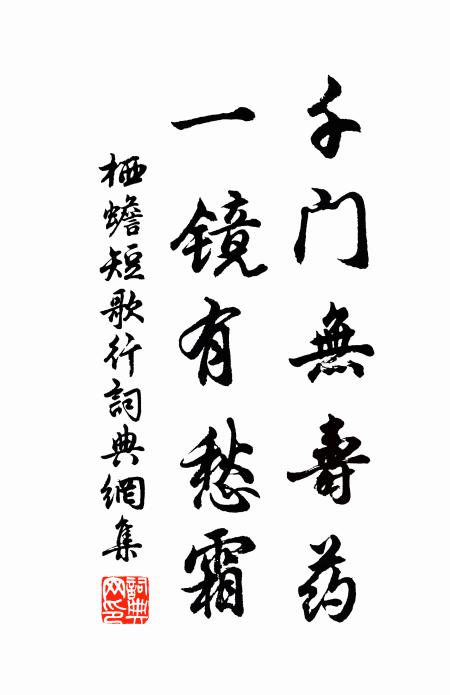 千门無壽药
一镜有愁霜
栖蟾短歌行詞典網集
詞典网印